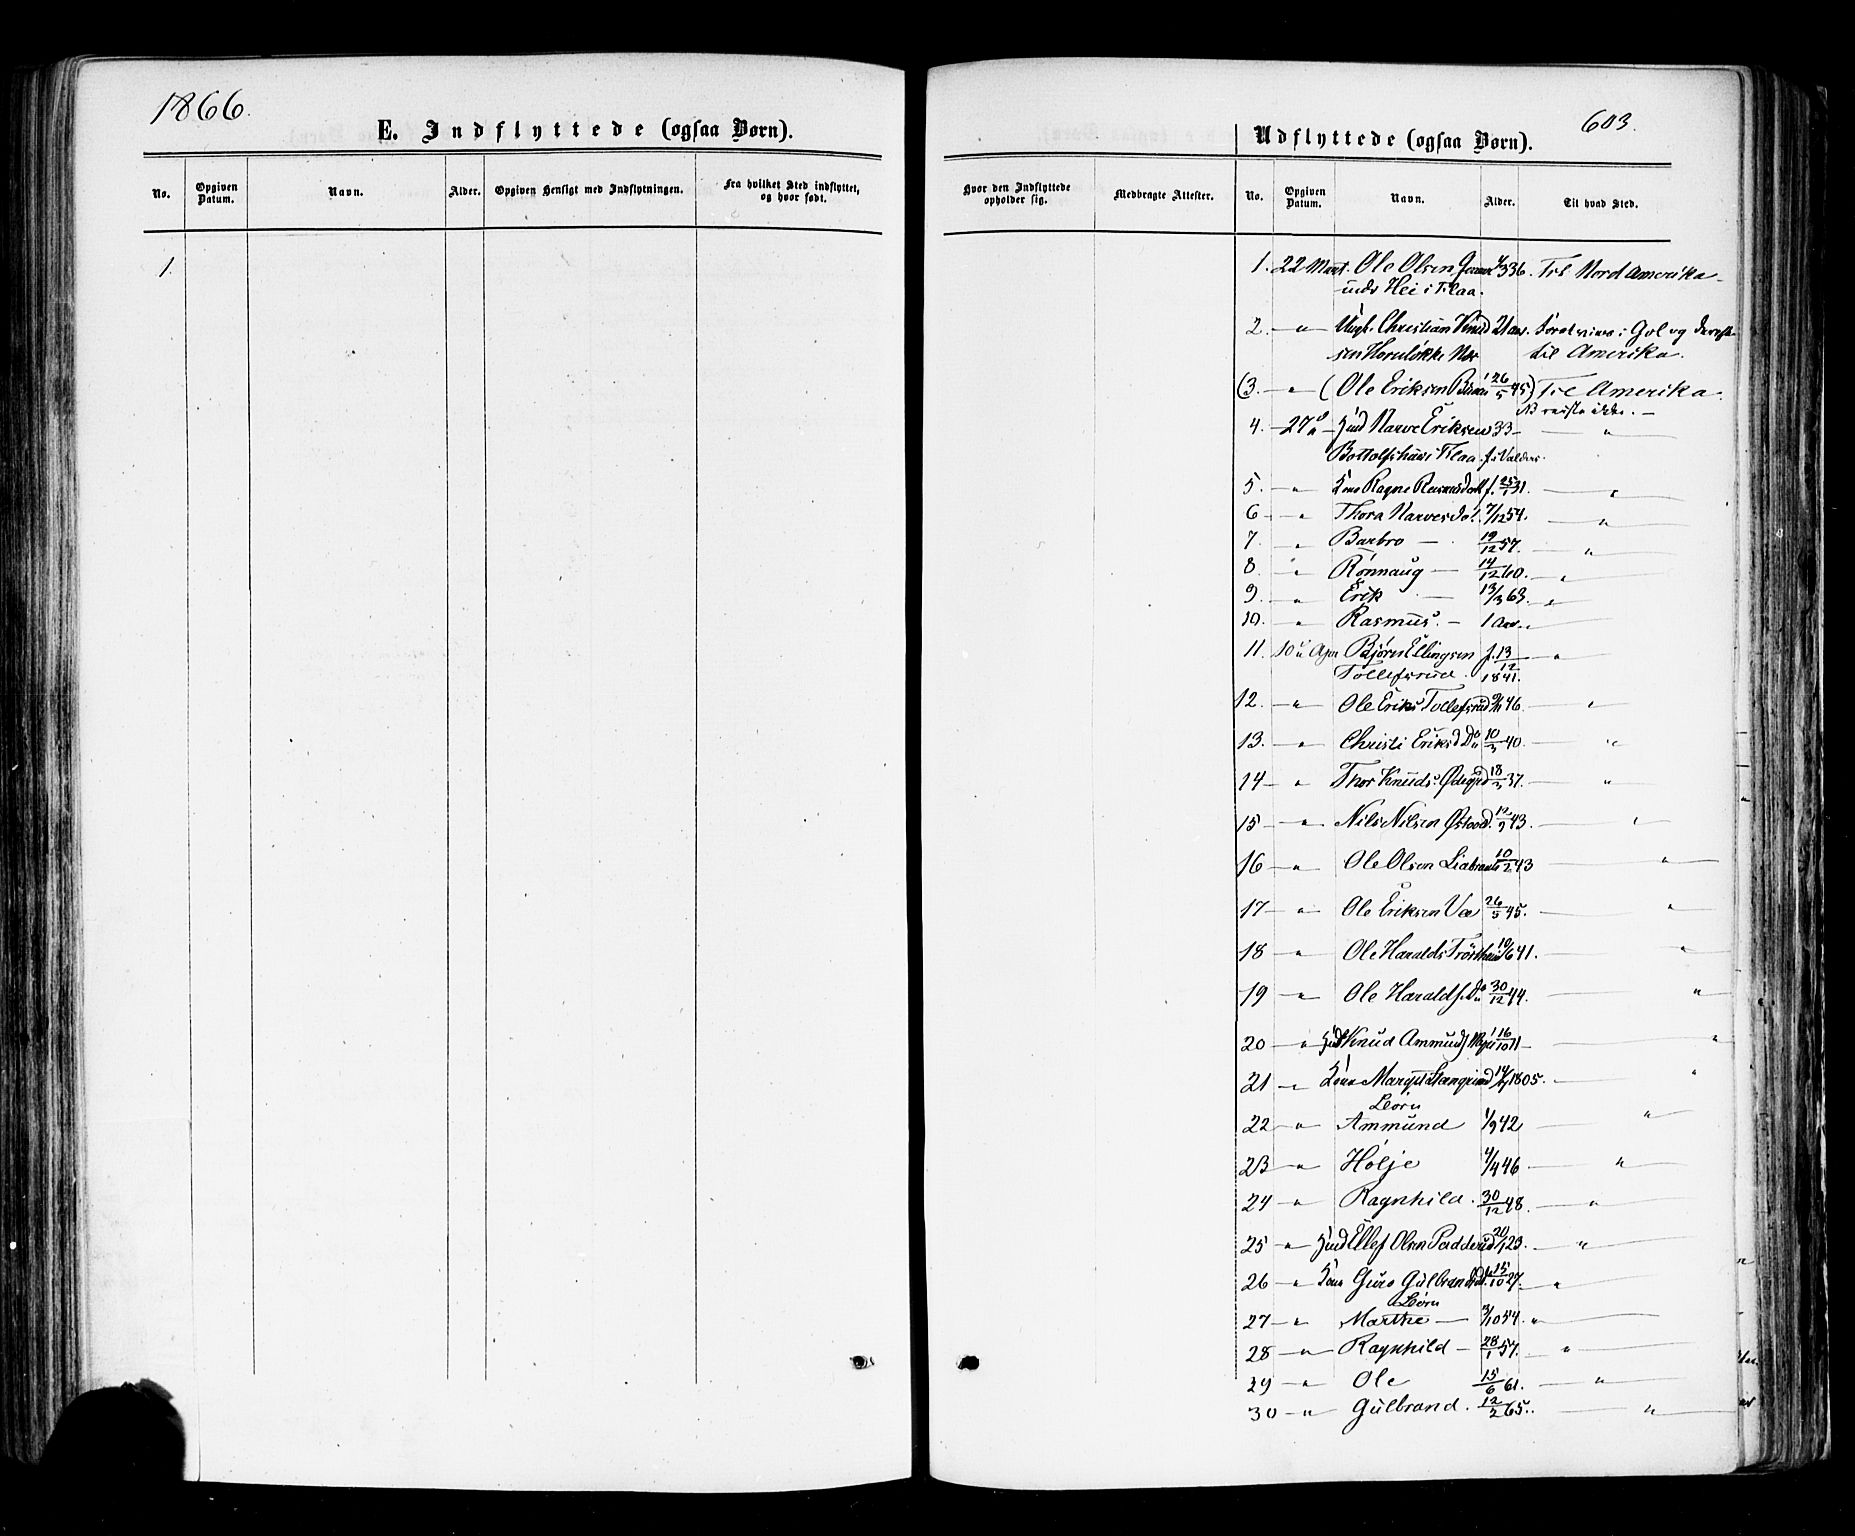 1866.
E. Indflyttede (ogsaa Børn).
No. Opgiven Datum. Navn. Alder. Opgiven Hensigt med Indflytningen. Fra hvilket Sted indflyttet, og hvor født.
1.
603.
Udflyttede (ogsaa Børn).
Hvor den Indflyttede opholder sig. Medbragte Attester. No. Opgiven Datum. Navn. Alder. Til hvad Sted.
1. 22 Mart. Ole Olsen 36. Til Nord Amerika
Hei i Flaa.
2. " Christian Knud 21 aar. i Gol og
sen Hornløkke Næs til Amerika.
(3. " (Ole Eriksen 26/5 45) Til Amerika.
NB reiste ikke. —
4. 27 " Narve Eriksen 33 "
Bottolfshus i Flaa. f. i Valders.
5. " Kone Ragne Rasmusdatt f. 25/1 31. "
6 " Thora Narvesd. 7/12 54. "
7. " Barbro — 19/12 57. "
8 " Rønnaug — 14/12 60. "
9. " Erik — 13/3 63. "
10. " Rasmus. — 1 Aar. "
11. 10 " Apr Bjørn Ellingsen f. 13/12 "
Tollefsrud. 1841.
12. " Ole Eriks Tollefsrud 46. "
13. " Christi Eriksd Do 10/3 40. "
14 " Thor Knuds. Ødegrd 18/3 37. "
15 " Nils Nilsen 12/2 43. "
16 " Ole Olsen 10/2 43 "
17 " Ole Eriksen 26/5 45. "
18 " Ole Haralds Trøstheim 10/6 41. "
19 " Ole Haralds. Do 30/12 44. "
20 " Knud Ammunds 16/10 11 "
21 " Kone Margit 14/ 1805. "
Børn
22 " Ammund 1/9 42 "
23 " Holje 4/4 46 "
24 " Ragnhild. 30/12 48. "
25 " Ellef Olsen 20/ 23. "
26 " Kone Guro Gulbrandsd. 15/10 27. "
Børn
27 " Marthe — 3/10 54. "
28 " Ragnhild — 28/1 57. "
29 " Ole 15/6 61. "
30 " Gulbrand. 12/2 65. "